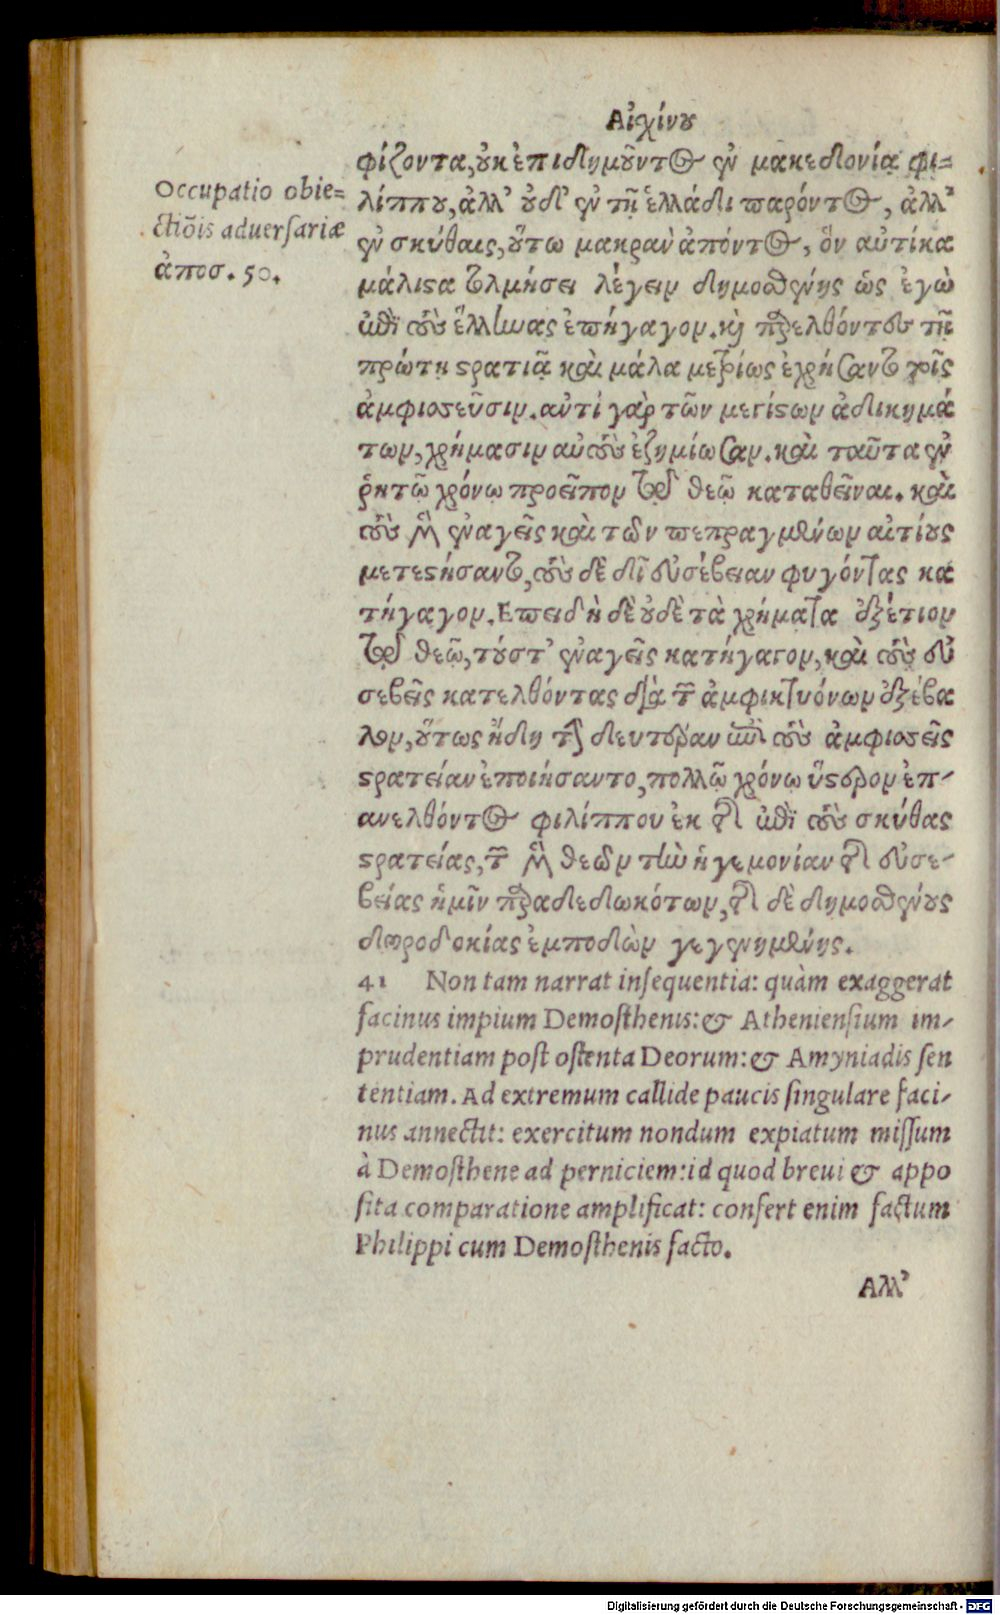 Αἰχίνου
φίζοντα, οὐκ ἐπιδημοῦντος ἐν μακεδονίᾳ φι=
λίππου, ἀλλ' οὐδ' ἐν τῇ ἑλλάδι παρόντος, ἀλλ'
ἐν σκύθαις, οὕτω μακρὰν ἀπόντος, ὃν αὐτίκα
μάλιστα τολμήσει λέγειν δημοσθένης ὡς ἐγὼ
ἐπὶ τοὺς ἕλληνας ἐπήγαγον. καὶ παρελθόντες τῇ
πρώτῃ στρατιᾷ καὶ μάλα μετρίως ἐχρήσαντο τοῖς
ἀμφισσεῦσιν. αὐτὶ γὰρ τῶν μεγίστων ἀδικημά
των, χρήμασιν αὐτοὺς ἐζημίωσαν. καὶ ταῦτα ἐν
ῥητῷ χρόνῳ προεῖπον τῷ θεῷ καταθεῖναι. καὶ
τοὺς μὲν ἐναγεῖς καὶ τῶν πεπραγμένων αἰτίους
μετεστήσαντο, τοὺς δὲ δι' εὐσέβειαν φυγόντας κα
τήγαγον. Επειδὴ δὲ οὐδὲ τὰ χρήματα ἐξέτιον
τῷ θεῷ, τούς τ' ἐναγεῖς κατήγαγον, καὶ τοὺς εὐ
σεβεῖς κατελθόντας διὰ τῶν ἀμφικτυόνων ἐξέβα
λον, οὕτως ἤδη τὴν δευτέραν ἐπὶ τοὺς ἀμφισσεῖς
στρατείαν ἐποιήσαντο, πολλῷ χρόνῳ ὕστερον ἐπ-
ανελθόντος φιλίππου ἐκ τῆς ἐπὶ τοὺς σκύθας
στρατείας, τῶν μὲν θεῶν τὴν ἡγεμονίαν τῆς εὐσε-
βείας ἡμῖν παραδεδωκότων, τῆς δὲ δημοσθένους
δωροδοκίας ἐμποδὼν γεγενημένης.
Occupatio obie=
ctiōis aduersariæ
ἀποσ. 50.
41 Non tam narrat insequentia: quàm exaggerat
facinus impium Demosthenis: & Atheniensium im-
prudentiam post ostenta Deorum: & Amyniadis sen
tentiam. Ad extremum callide paucis singulare faci-
nus annectit: exercitum nondum expiatum missum
à Demosthene ad perniciem: id quod breui & appo
sita comparatione amplificat: confert enim factum
Philippi cum Demosthenis facto.
Αλλ'
Digitalisierung gefördert durch die Deutsche Forschungsgemeinschaft - DFG